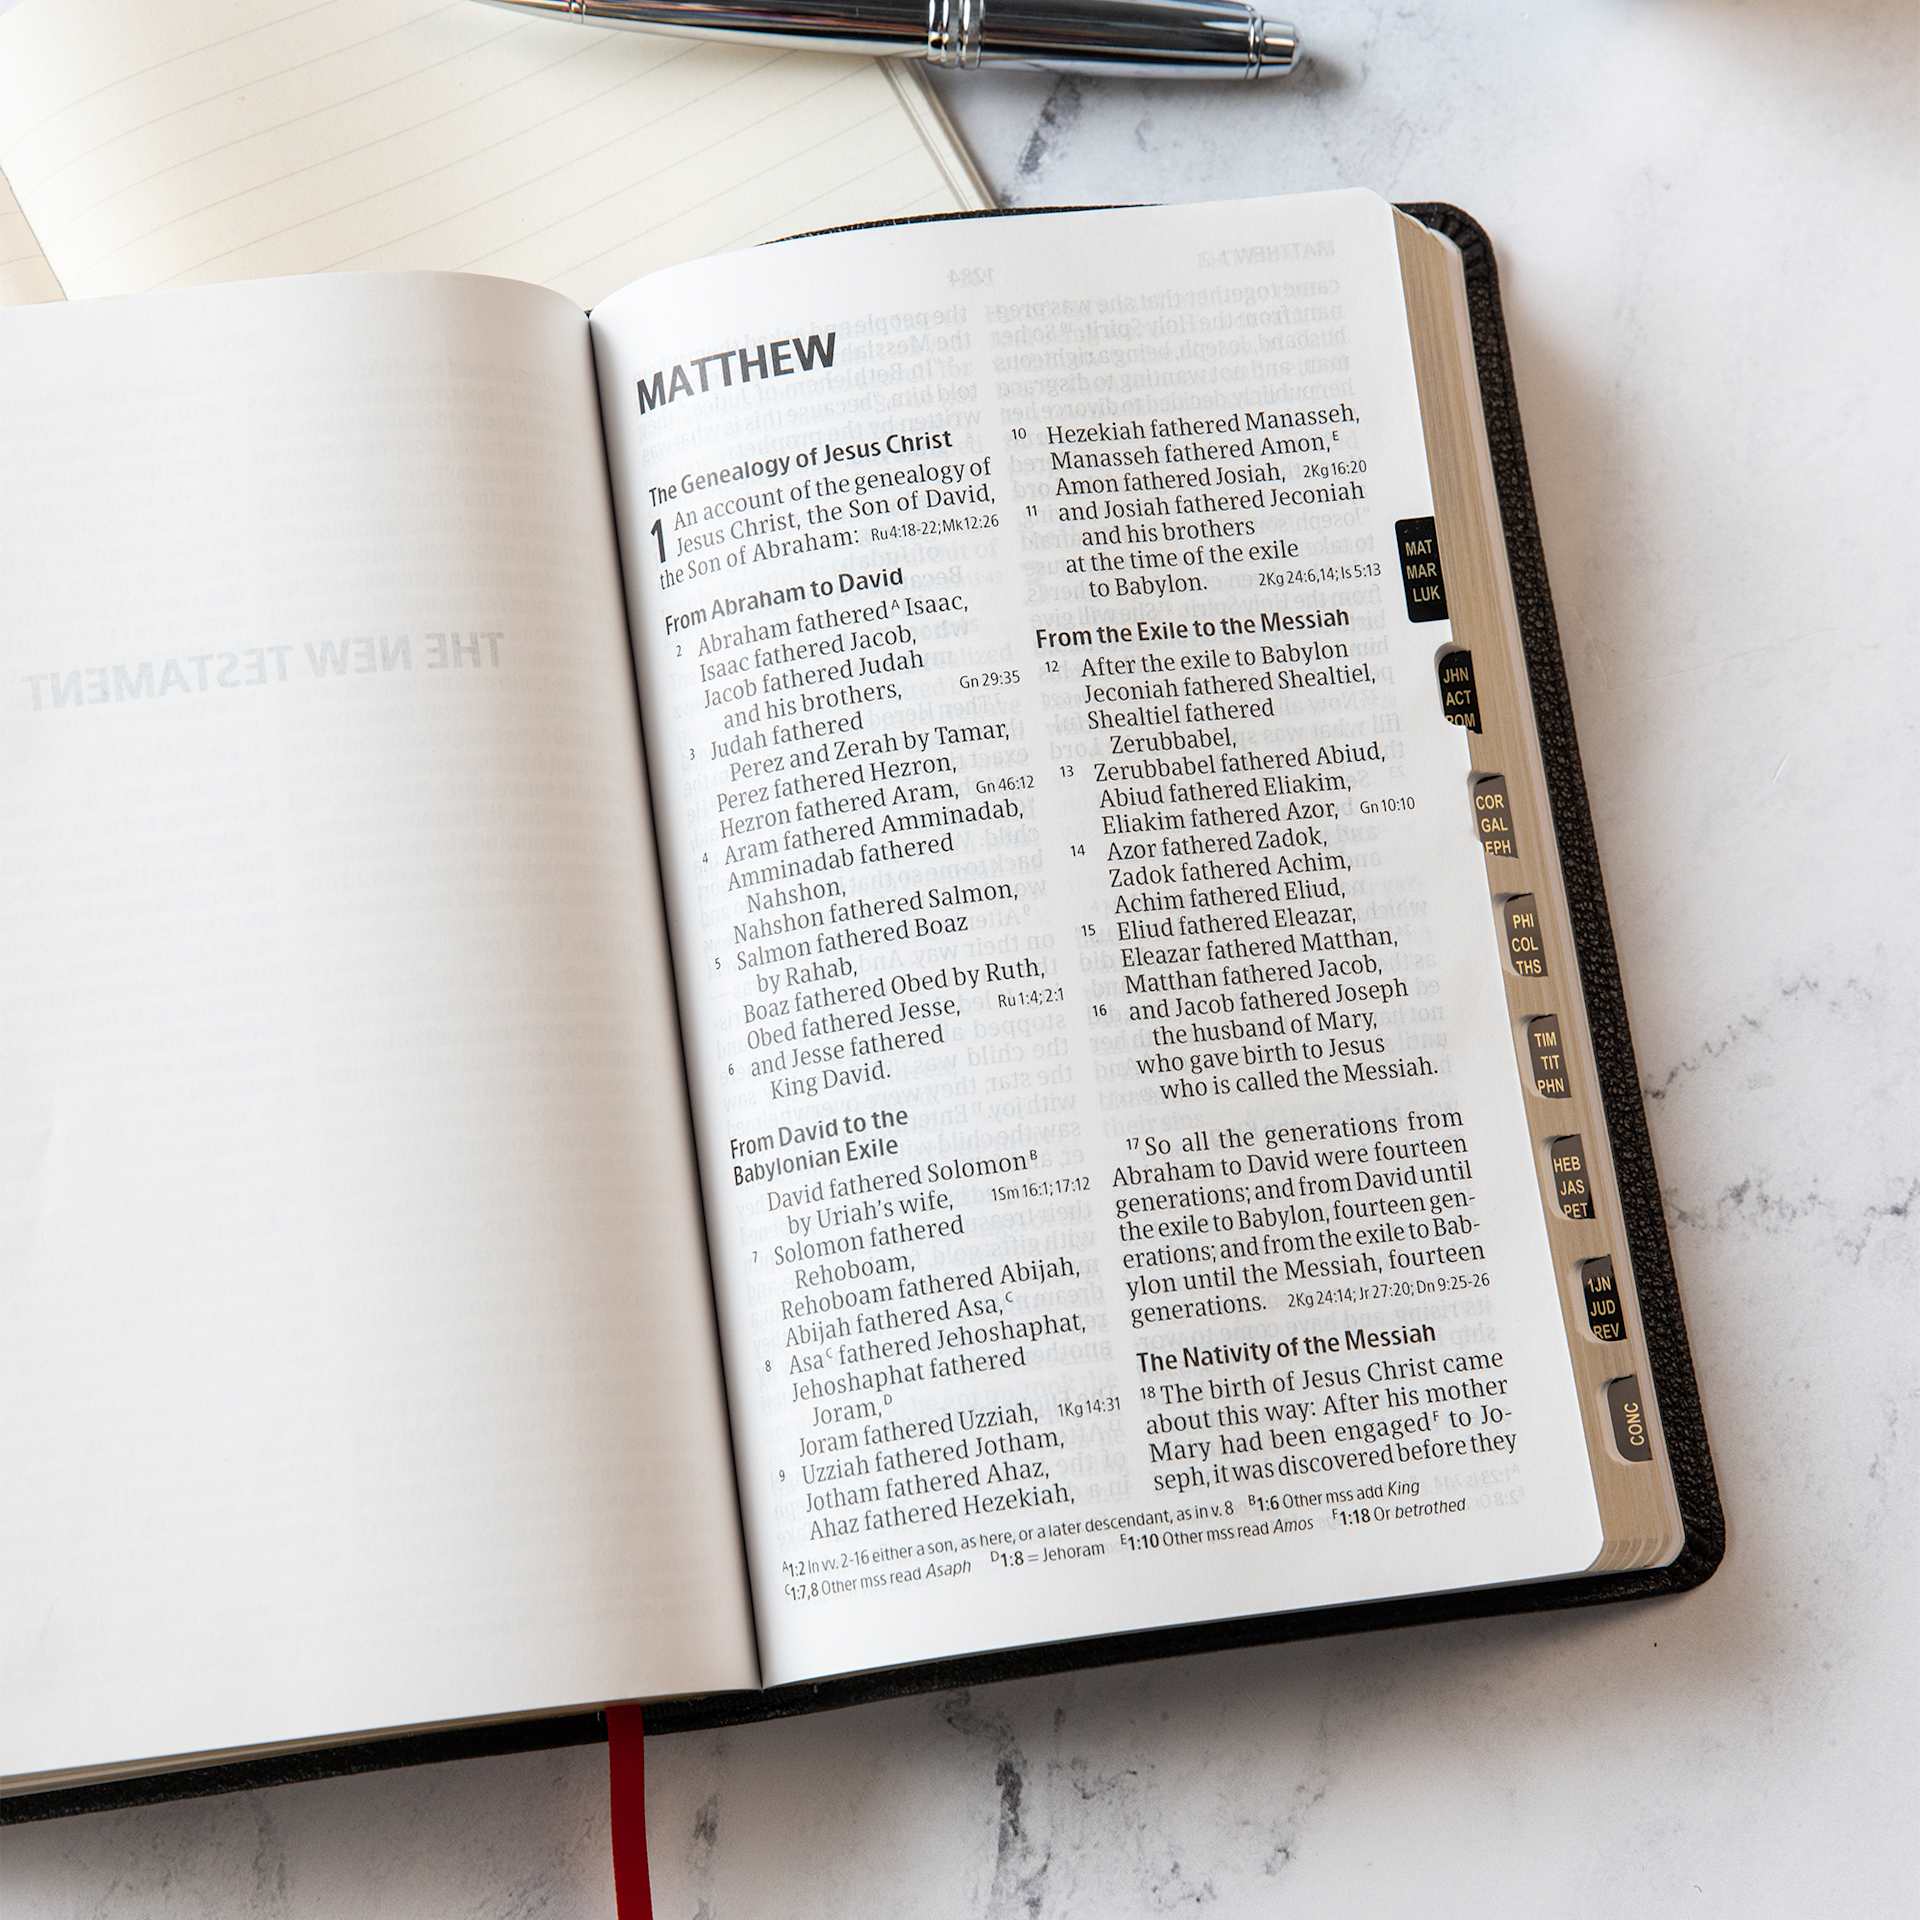 THE NEW TESTAMENT
1284
MATTHEW 1-2
MATTHEW
The Genealogy of Jesus Christ
1 An account of the genealogy of
Jesus Christ, the Son of David,
the Son of Abraham: Ru 4:18-22; Mk 12:26
From Abraham to David
2 Abraham fathered A Isaac,
Isaac fathered Jacob,
Jacob fathered Judah
and his brothers, Gn 29:35
3 Judah fathered
Perez and Zerah by Tamar,
Perez fathered Hezron,
Hezron fathered Aram, Gn 46:12
4 Aram fathered Amminadab,
Amminadab fathered
Nahshon,
Nahshon fathered Salmon,
5 Salmon fathered Boaz
by Rahab,
Boaz fathered Obed by Ruth,
Obed fathered Jesse, Ru 1:4; 2:1
6 and Jesse fathered
King David.
From David to the
Babylonian Exile
David fathered Solomon B
by Uriah's wife, 1Sm 16:1; 17:12
7 Solomon fathered
Rehoboam,
Rehoboam fathered Abijah,
Abijah fathered Asa, C
8 Asa C fathered Jehoshaphat,
Jehoshaphat fathered
Joram, D
Joram fathered Uzziah, 1Kg 14:31
9 Uzziah fathered Jotham,
Jotham fathered Ahaz,
Ahaz fathered Hezekiah,
10 Hezekiah fathered Manasseh,
Manasseh fathered Amon, E
Amon fathered Josiah, 2Kg 16:20
11 and Josiah fathered Jeconiah
and his brothers
at the time of the exile
to Babylon. 2Kg 24:6,14; Is 5:13
From the Exile to the Messiah
12 After the exile to Babylon
Jeconiah fathered Shealtiel,
Shealtiel fathered
Zerubbabel,
13 Zerubbabel fathered Abiud,
Abiud fathered Eliakim,
Eliakim fathered Azor, Gn 10:10
14 Azor fathered Zadok,
Zadok fathered Achim,
Achim fathered Eliud,
15 Eliud fathered Eleazar,
Eleazar fathered Matthan,
Matthan fathered Jacob,
16 and Jacob fathered Joseph
the husband of Mary,
who gave birth to Jesus
who is called the Messiah.
17 So all the generations from
Abraham to David were fourteen
generations; and from David until
the exile to Babylon, fourteen gen-
erations; and from the exile to Bab-
ylon until the Messiah, fourteen
generations. 2Kg 24:14; Jr 27:20; Dn 9:25-26
The Nativity of the Messiah
18 The birth of Jesus Christ came
about this way: After his mother
Mary had been engaged F to Jo-
seph, it was discovered before they
A 1:2 In vv. 2-16 either a son, as here, or a later descendant, as in v. 8 B 1:6 Other mss add King
C 1:7,8 Other mss read Asaph D 1:8 = Jehoram E 1:10 Other mss read Amos F 1:18 Or betrothed
MAT
MAR
LUK
JHN
ACT
ROM
COR
GAL
EPH
PHI
COL
THS
TIM
TIT
PHN
HEB
JAS
PET
1JN
JUD
REV
CONC